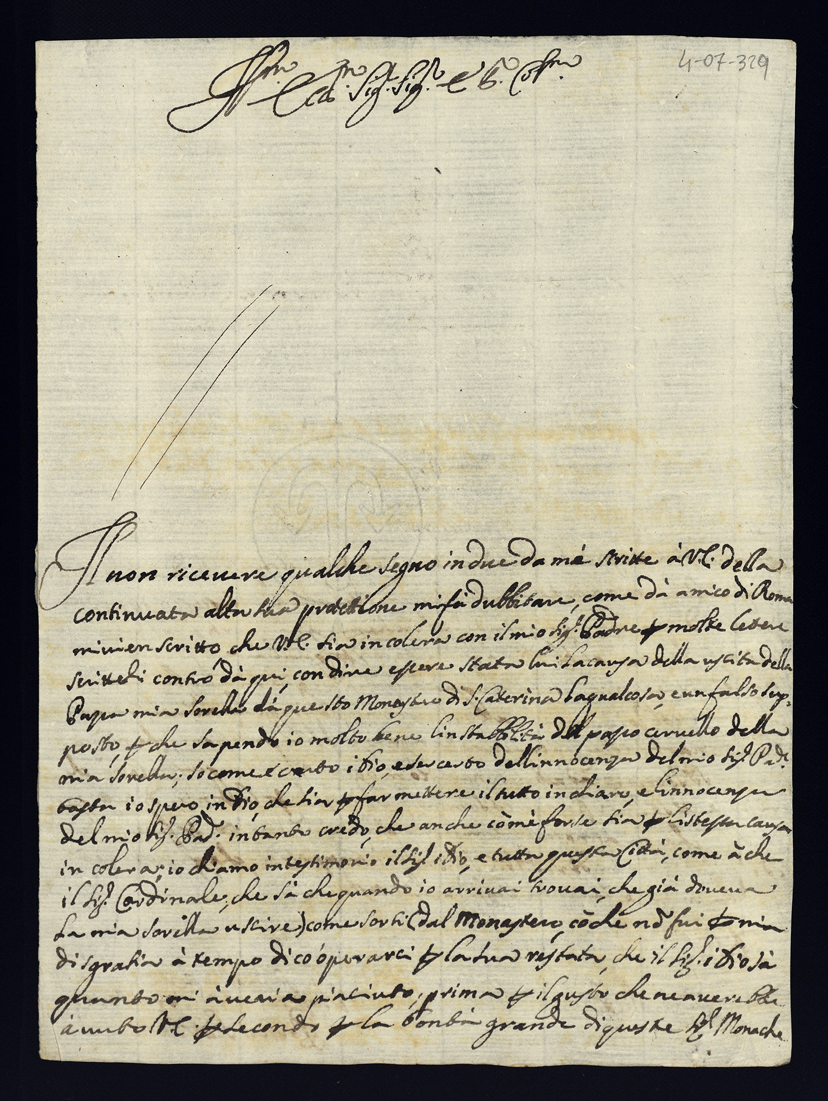 4-07-329
Ill.mo Ecc.mo Sig.r Sig.r e P.ron Col.mo
Il non ricevere qualche segno in due da mé scritte à V.E. della
continuata alta sua protettione mi fà dubbitare, come dà amico di Roma
mi vien scritto che V.E. sia in colera con il mio Sig.r Padre p molte lettere
scritteli contro dà qui, con dire essere stata lui la causa della uscita della
Papa mia sorella dà questo Monastero di S. Caterina la qual cosa, e un falso sup-
posto, p che sapendo io molto bene l'instabbilità del pazzo cervello della
mia sorella; so come é certo idio, e ser certo dell'innocenza del mio Sig.r Pad.e
basta io spero in Dio, che sia p far mettere il tutto in chiaro, e l'innocenza
del mio Sig.r Pad.e intanto credo, che anche cō mé forse sia p l'istessa causa
in colera; io chiamo in testimonio il Sig.r idio, e tutta questa Città, come à che
il Sig.r Cardinale, che sà che quando io arrivai trovai, che già doveva
la mia sorella uscire) come sortì (dal Monastero, cō che nō fui p mia
disgratia à tempo di coóperarci p la sua restata, che il Sig.r idio sà
quanto mi àveria piaciuto, prima p il gusto che ne averebbe
àvuto VE p secondo p la bontà grande di queste Sig.re Monache